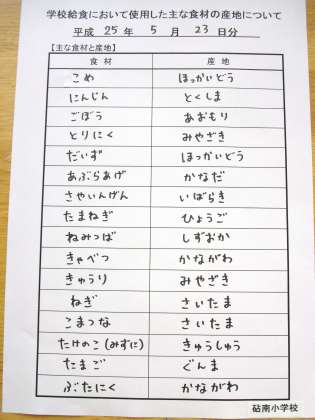 学校給食において使用した主な食材の産地について
平成 25 年 5 月 23 日分
【主な食材と産地】
食材 産地
こめ ほっかいどう
にんじん とくしま
ごぼう あおもり
とりにく みやざき
だいず ほっかいどう
あぶらあげ かなだ
さやいんげん いばらき
たまねぎ ひょうご
ねみつば しずおか
きゃべつ かながわ
きゅうり みやざき
ねぎ さいたま
こまつな さいたま
たけのこ(みずに) きゅうしゅう
たまご ぐんま
ぶたにく かながわ
砧南小学校